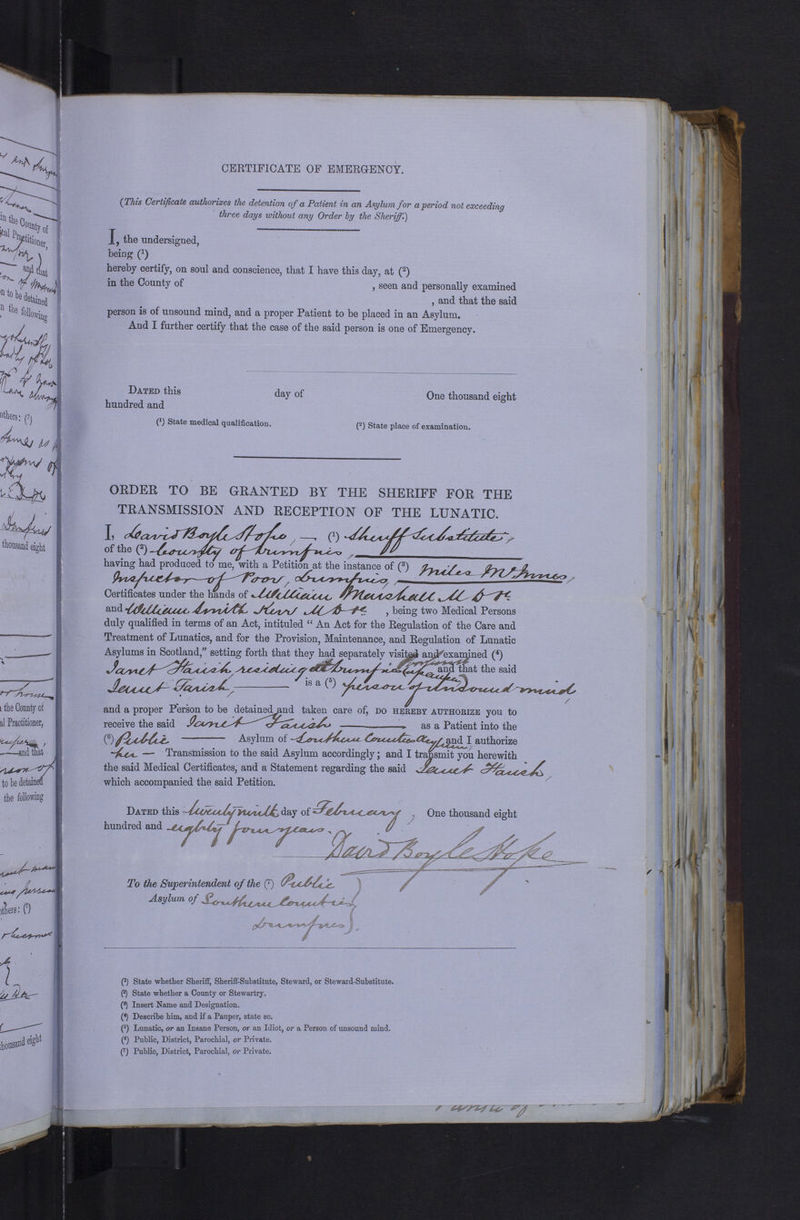 CERTIFICATE OF EMERGENCY.
(This Certificate authorizes the detention of a Patient in an Asylum for a period not exceeding
three days without any Order by the Sheriff.)
I, the undersigned,
being (1)
hereby certify, on soul and conscience, that I have this day, at (2)
in the County of , seen and personally examined
, and that the said
person is of unsound mind, and a proper Patient to be placed in an Asylum.
And I further certify that the case of the said person is one of Emergency.
DATED this day of One thousand eight
hundred and
(1) State medical qualification. (2) State place of examination.
ORDER TO BE GRANTED BY THE SHERIFF FOR THE
TRANSMISSION AND RECEPTION OF THE LUNATIC.
I, David Boyle Hope, — (1) Sheriff Substitute,
of the (2) County of Dumfries,
having had produced to me, with a Petition at the instance of (3) Miles McInnes,
Inspector of Poor, Dumfries,
Certificates under the hands of William Marshall M D &c
and William Smith Kerr M D &c , being two Medical Persons
duly qualified in terms of an Act, intituled “ An Act for the Regulation of the Care and
Treatment of Lunatics, and for the Provision, Maintenance, and Regulation of Lunatic
Asylums in Scotland,” setting forth that they had separately visited and examined (4)
Janet Farish residing at Dumfries a pauper and that the said
Janet Farish, is a (5) person of unsound mind
and a proper Person to be detained and taken care of, DO HEREBY AUTHORIZE you to
receive the said Janet Farish as a Patient into the
(6) Public Asylum of Southern Counties and I authorize
her — Transmission to the said Asylum accordingly; and I transmit you herewith
the said Medical Certificates, and a Statement regarding the said Janet Farish,
which accompanied the said Petition.
DATED this twenty ninth day of February, One thousand eight
hundred and eighty four years.
David Boyle Hope
To the Superintendent of the (7) Public
Asylum of Southern Counties
Dumfries).
(1) State whether Sheriff, Sheriff-Substitute, Steward, or Steward-Substitute.
(2) State whether a County or Stewartry.
(3) Insert Name and Designation.
(4) Describe him, and if a Pauper, state so.
(5) Lunatic, or an Insane Person, or an Idiot, or a Person of unsound mind.
(6) Public, District, Parochial, or Private.
(7) Public, District, Parochial, or Private.
in the County of
Practitioner,
and that
to be detained
the following
others: (7)
thousand eight
the County of
al Practitioner,
and that
to be detained
the following
others: (7)
thousand eight